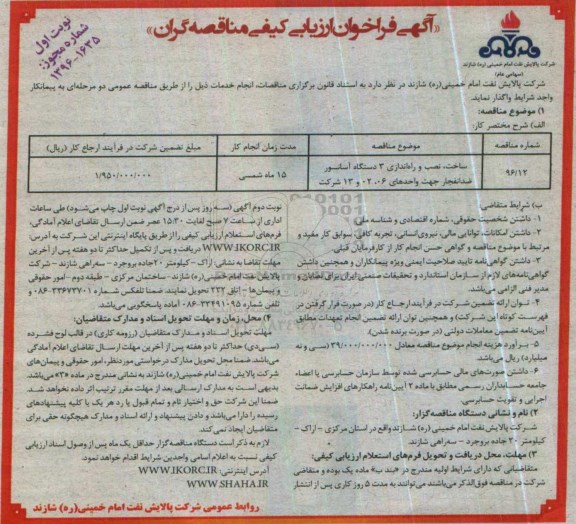 «آگهی فراخوان ارزیابی کیفی مناقصه‌گران»
نوبت اول
شماره مجوز:
۱۳۹۶-۱۶۳۵
شرکت پالایش نفت امام خمینی(ره) شازند
(سهامی عام)
شرکت پالایش نفت امام خمینی(ره) شازند در نظر دارد به استناد قانون برگزاری مناقصات، انجام خدمات ذیل را از طریق مناقصه عمومی دو مرحله‌ای به پیمانکار
واجد شرایط واگذار نماید.
۱) موضوع مناقصه:
الف) شرح مختصر کار:
شماره مناقصه
موضوع مناقصه
مدت زمان انجام کار
مبلغ تضمین شرکت در فرآیند ارجاع کار (ریال)
۹۶/۱۲
ساخت، نصب و راه‌اندازی ۳ دستگاه آسانسور
ضدانفجار جهت واحدهای ۰۶، ۰۲ و ۱۳ شرکت
۱۵ ماه شمسی
۱/۹۵۰/۰۰۰/۰۰۰
ب) شرایط متقاضی:
۱- داشتن شخصیت حقوقی، شماره اقتصادی و شناسه ملی.
۲- داشتن امکانات، توانایی مالی، نیروی‌انسانی، تجربه کافی، سوابق کار مفید و
مرتبط با موضوع مناقصه و گواهی حسن انجام کار از کارفرمایان قبلی.
۳- داشتن گواهی‌نامه تایید صلاحیت ایمنی ویژه پیمانکاران و همچنین داشتن
گواهی‌نامه‌های لازم از سازمان استاندارد و تحقیقات صنعتی ایران برای اعضای و
مدیر فنی الزامی می‌باشد.
۴- توان ارائه تضمین شرکت در فرآیند ارجاع کار (در صورت قرار گرفتن در
فهرست کوتاه این شرکت) و همچنین توان ارائه تضمین انجام تعهدات مطابق
آیین‌نامه تضمین معاملات دولتی (در صورت برنده شدن).
۵- برآورد هزینه انجام موضوع مناقصه معادل ۳۹/۰۰۰/۰۰۰/۰۰۰ (سی و نه
میلیارد) ریال می‌باشد.
۶- داشتن صورت‌های مالی حسابرسی شده توسط سازمان حسابرسی یا اعضاء
جامعه حسابداران رسمی مطابق با ماده ۲ آیین‌نامه راهکارهای افزایش ضمانت
اجرایی و تقویت حسابرسی.
۲) نام و نشانی دستگاه مناقصه‌گزار:
شرکت پالایش نفت امام خمینی(ره) شازند واقع در استان مرکزی - اراک -
کیلومتر ۲۰ جاده بروجرد - سه‌راهی شازند.
۳) مهلت، محل دریافت و تحویل فرم‌های استعلام ارزیابی کیفی:
متقاضیانی که دارای شرایط اولیه مندرج در «بند ب» ماده یک بوده و متقاضی
شرکت در مناقصه فوق‌الذکر می‌باشند می‌توانند به مدت ۵ روز کاری پس از انتشار
نوبت دوم آگهی (سه روز پس از درج آگهی نوبت اول چاپ می‌شود) طی ساعات
اداری از ساعت ۷ صبح لغایت ۱۵:۳۰ عصر ضمن ارسال تقاضای اعلام آمادگی،
فرم‌های استعلام ارزیابی کیفی را از طریق پایگاه اینترنتی این شرکت به آدرس:
WWW.IKORC.IR دریافت و پس از تکمیل حداکثر تا دو هفته پس از آخرین
مهلت تقاضا به نشانی: اراک - کیلومتر ۲۰ جاده بروجرد - سه‌راهی شازند - شرکت
پالایش نفت امام خمینی(ره) شازند - ساختمان مرکزی - طبقه دوم - امور حقوقی
و پیمان‌ها - اتاق ۲۳۲ تحویل نمایند. ضمنا تلفکس شماره ۳۳۶۷۳۷۰۱-۰۸۶ و
تلفن شماره ۳۳۴۹۱۰۹۵-۰۸۶ آماده پاسخگویی می‌باشد.
۴) محل، زمان و مهلت تحویل اسناد و مدارک متقاضیان:
مهلت تحویل اسناد و مدارک متقاضیان (رزومه کاری) در قالب لوح فشرده
(سی‌دی) حداکثر تا دو هفته پس از آخرین مهلت ارسال تقاضای اعلام آمادگی
می‌باشد ضمنا محل تحویل مدارک درخواستی مورد نظر، امور حقوقی و پیمان‌های
شرکت پالایش نفت امام خمینی(ره) شازند به نشانی مندرج در ماده «۳» می‌باشد
بدیهی است به مدارک ارسالی بعد از مهلت مقرر ترتیب اثر داده نخواهد شد
ضمنا این شرکت حق و اختیار تام و تمام قبول یا رد هر یک یا کلیه پیشنهادهای
رسیده را دارا می‌باشد و دادن پیشنهاد و ارائه اسناد و مدارک هیچگونه حقی برای
متقاضیان ایجاد نمی‌کند.
لازم به ذکر است دستگاه مناقصه‌گزار حداقل یک ماه پس از وصول اسناد ارزیابی
کیفی نسبت به اعلام اسامی واجدین شرایط اقدام خواهد نمود.
آدرس اینترنتی: WWW.IKORC.IR
WWW.SHANA.IR
روابط عمومی شرکت پالایش نفت امام خمینی(ره) شازند